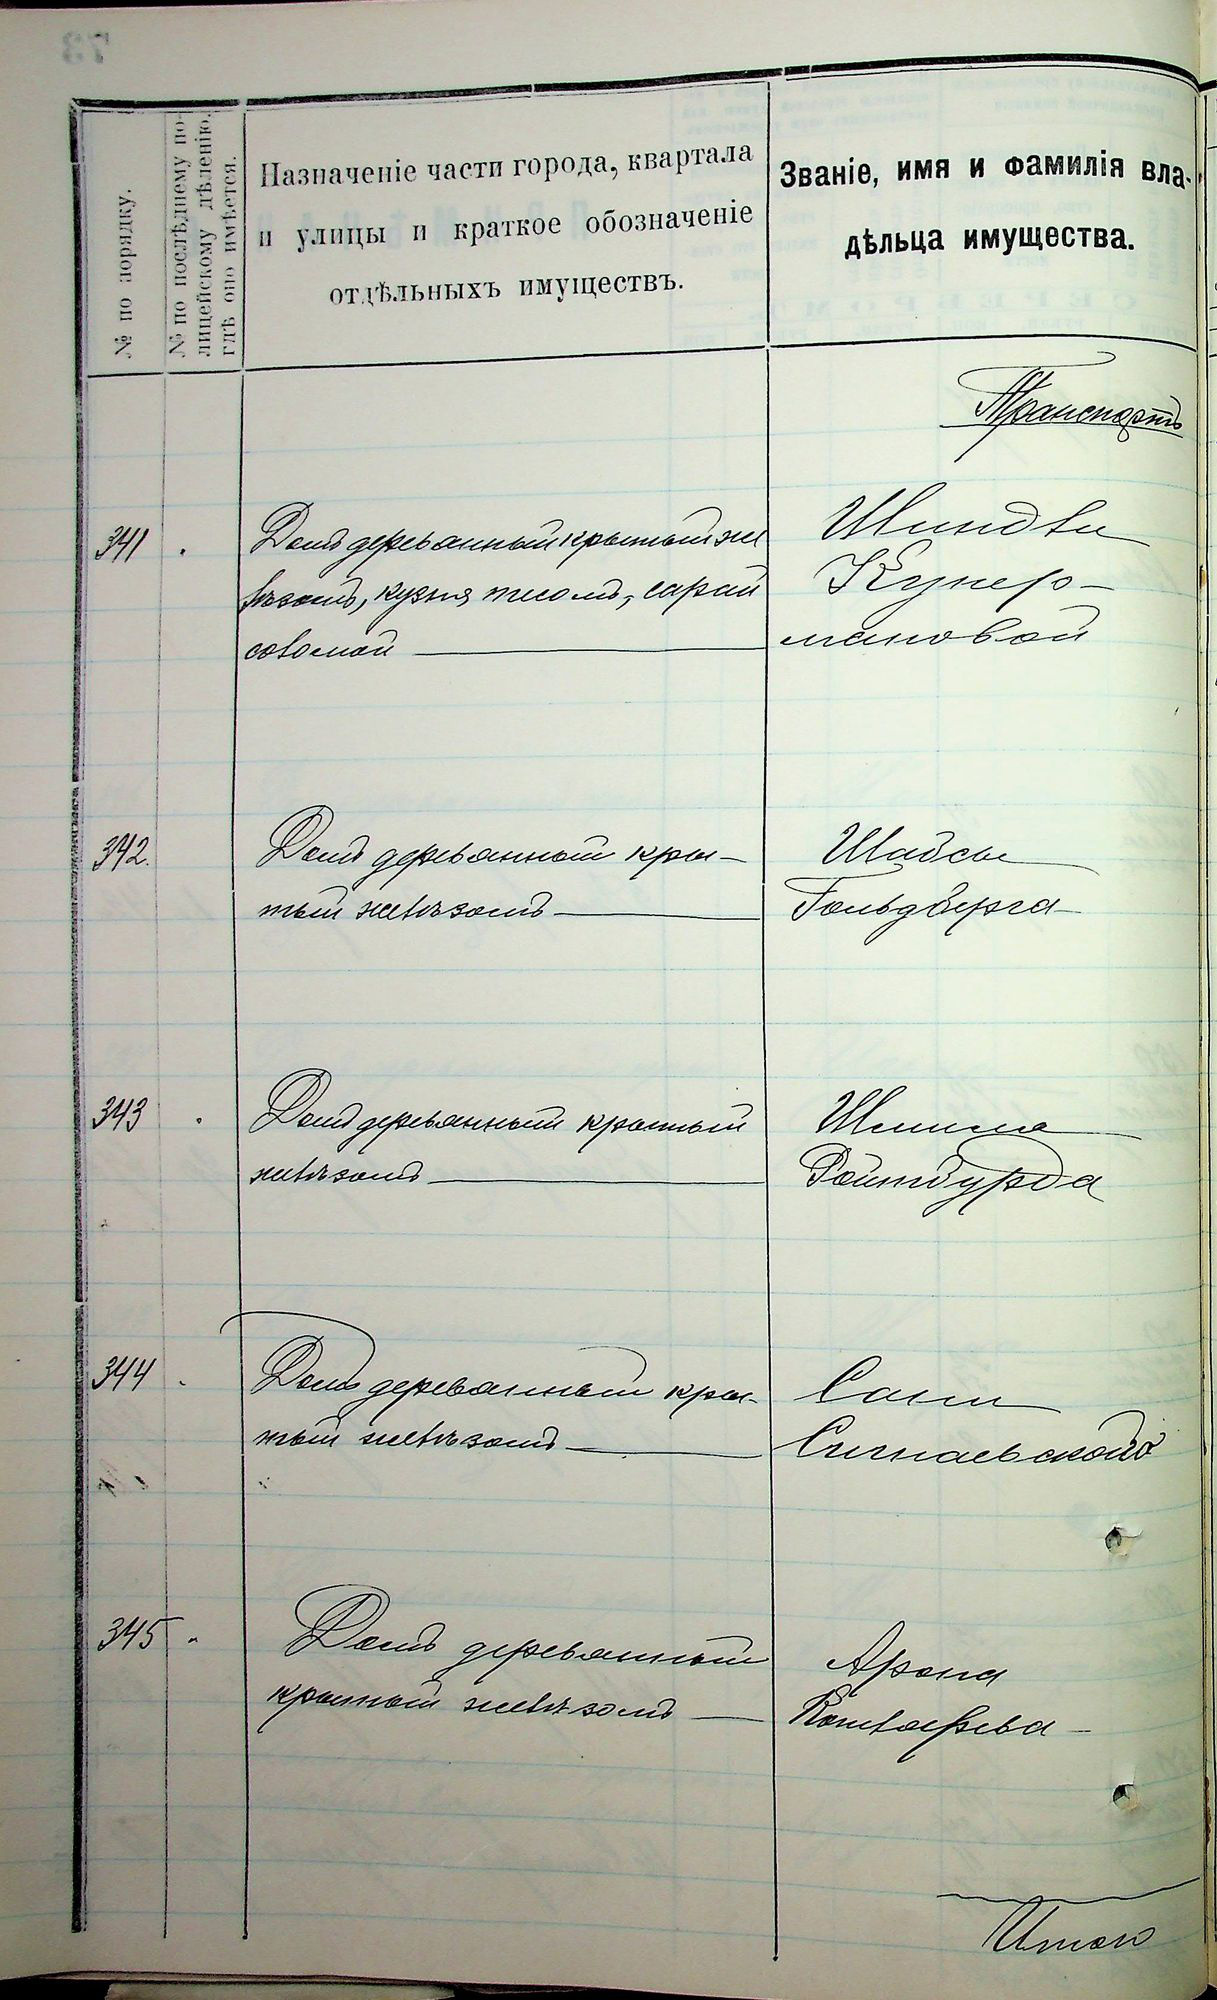 73
№ по порядку.
№ по послѣднему по-
лицейскому дѣленію,
гдѣ оно имѣется.
Назначеніе части города, квартала
и улицы и краткое обозначеніе
отдѣльныхъ имуществъ.
Званіе, имя и фамилія вла-
дѣльца имущества.
Транспортъ
341
Домъ деревянный крытый же
лѣзомъ, кузня тесомъ, сарай
соломой
Шиндли
Купер-
мановой
342.
Домъ деревянный кры-
тый желѣзомъ
Шайсы
Гольдберга
343
Домъ деревянный крытый
желѣзомъ
Шлима
Ройтбурда
344
Домъ деревянный кры-
тый желѣзомъ
Сани
345
Домъ деревянный
крытый желѣзомъ
Арона
Итого